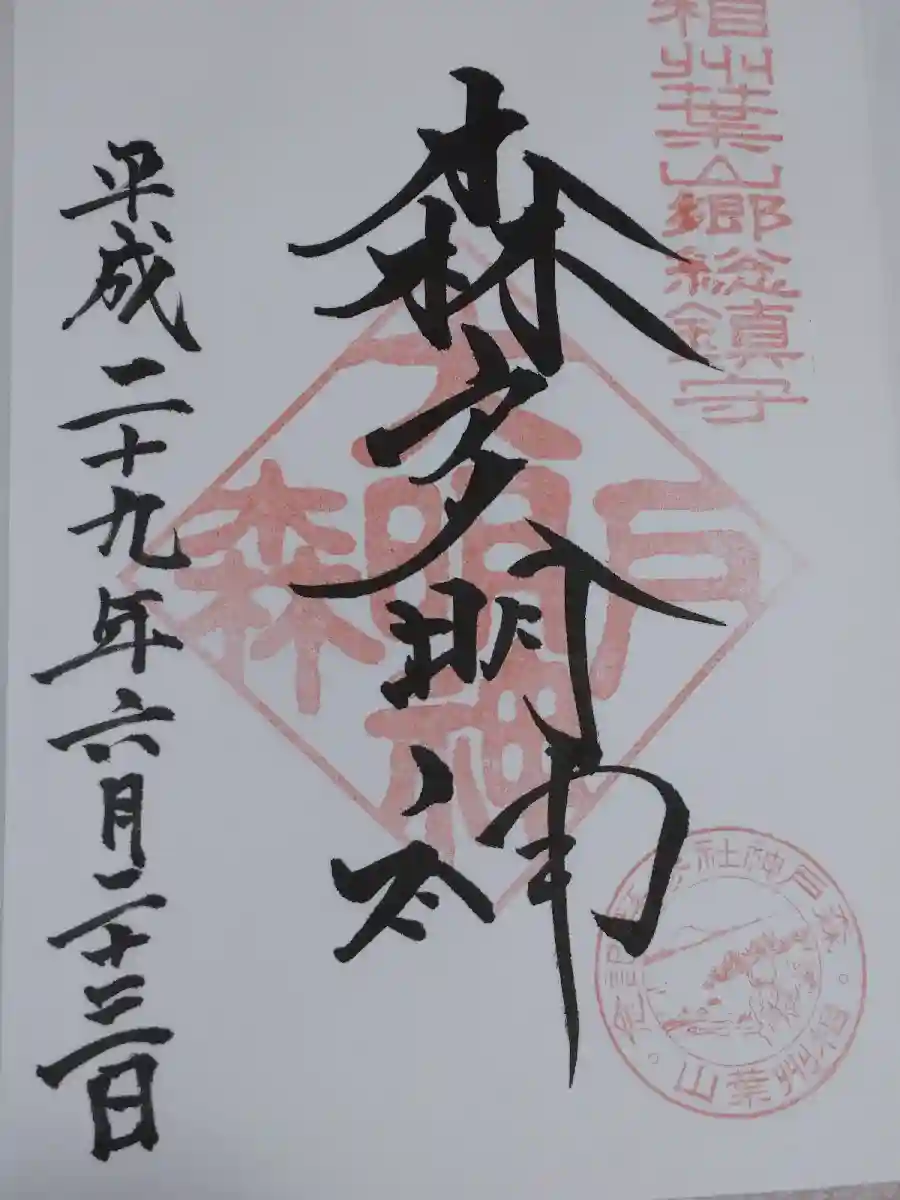 相州葉山郷総鎮守
森戸大明神
平成二十九年六月二十三日
戸
大明神
森
森戸神社参拝記念
相州葉山